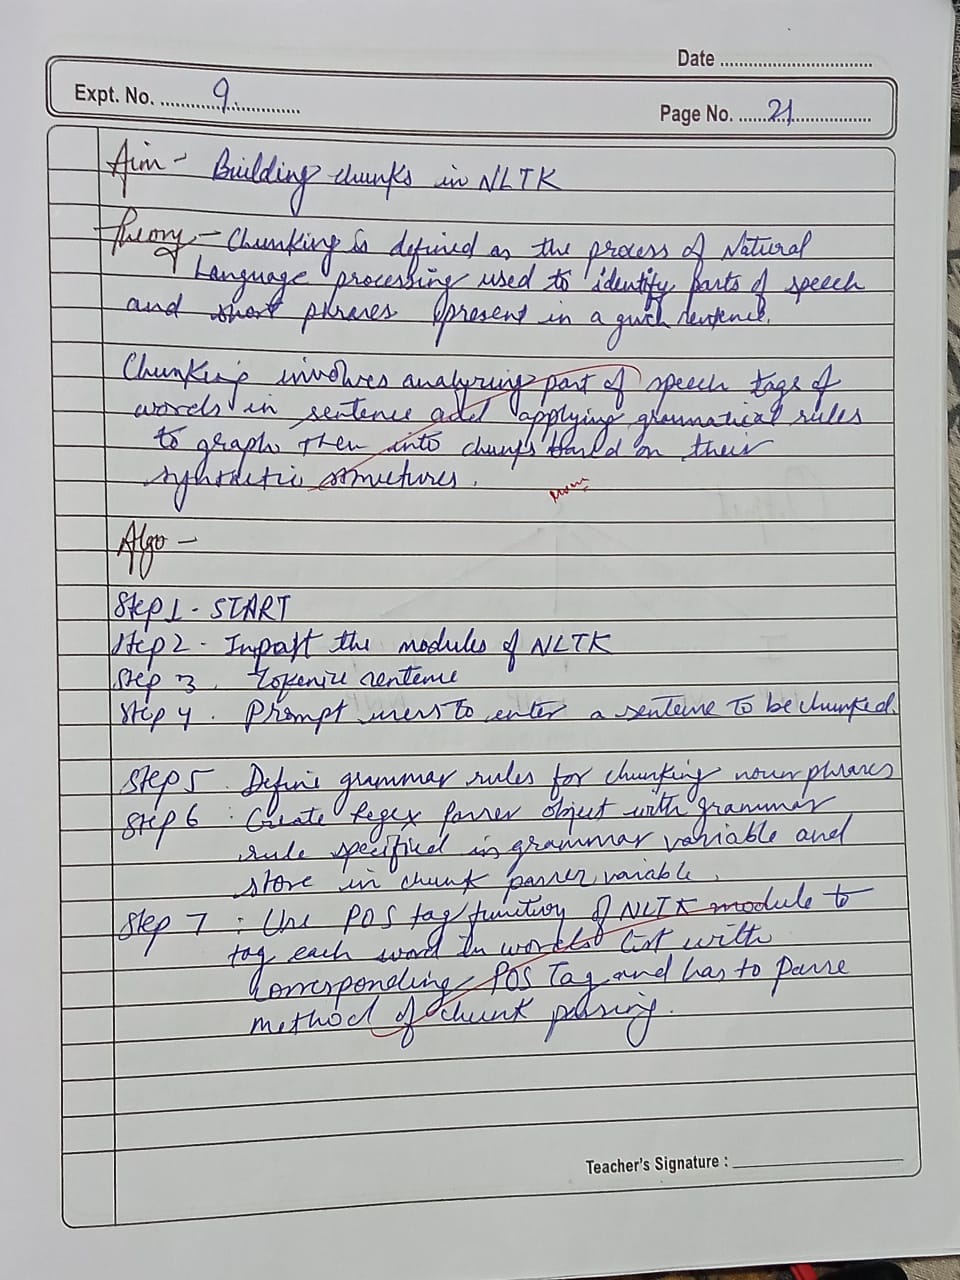 Date
Expt. No. 9.
Page No. 21
Aim - Building chunks in NLTK
Theory - Chunking is defined as the process of Natural
Language processing used to identify parts of speech
and short phrases present in a given sentence.
Chunking involves analyzing part of speech tags of
words in sentence and applying grammatical rules
to graph then into chunks based on their
structures.
Algo -
Step 1 - START
Step 2 - Import the modules of NLTK
Step 3. Tokenize sentence
Step 4. Prompt users to enter a sentence to be chunked.
Step 5. Define grammar rules for chunking noun phrases
Step 6 : Create Regex Parser object with grammar
rule specified in grammar variable and
store in chunk parser variable.
Step 7 : Use POS tag function of NLTK module to
tag each word in words list with
corresponding POS Tag and has to parse
method of chunk parsing.
Teacher's Signature :